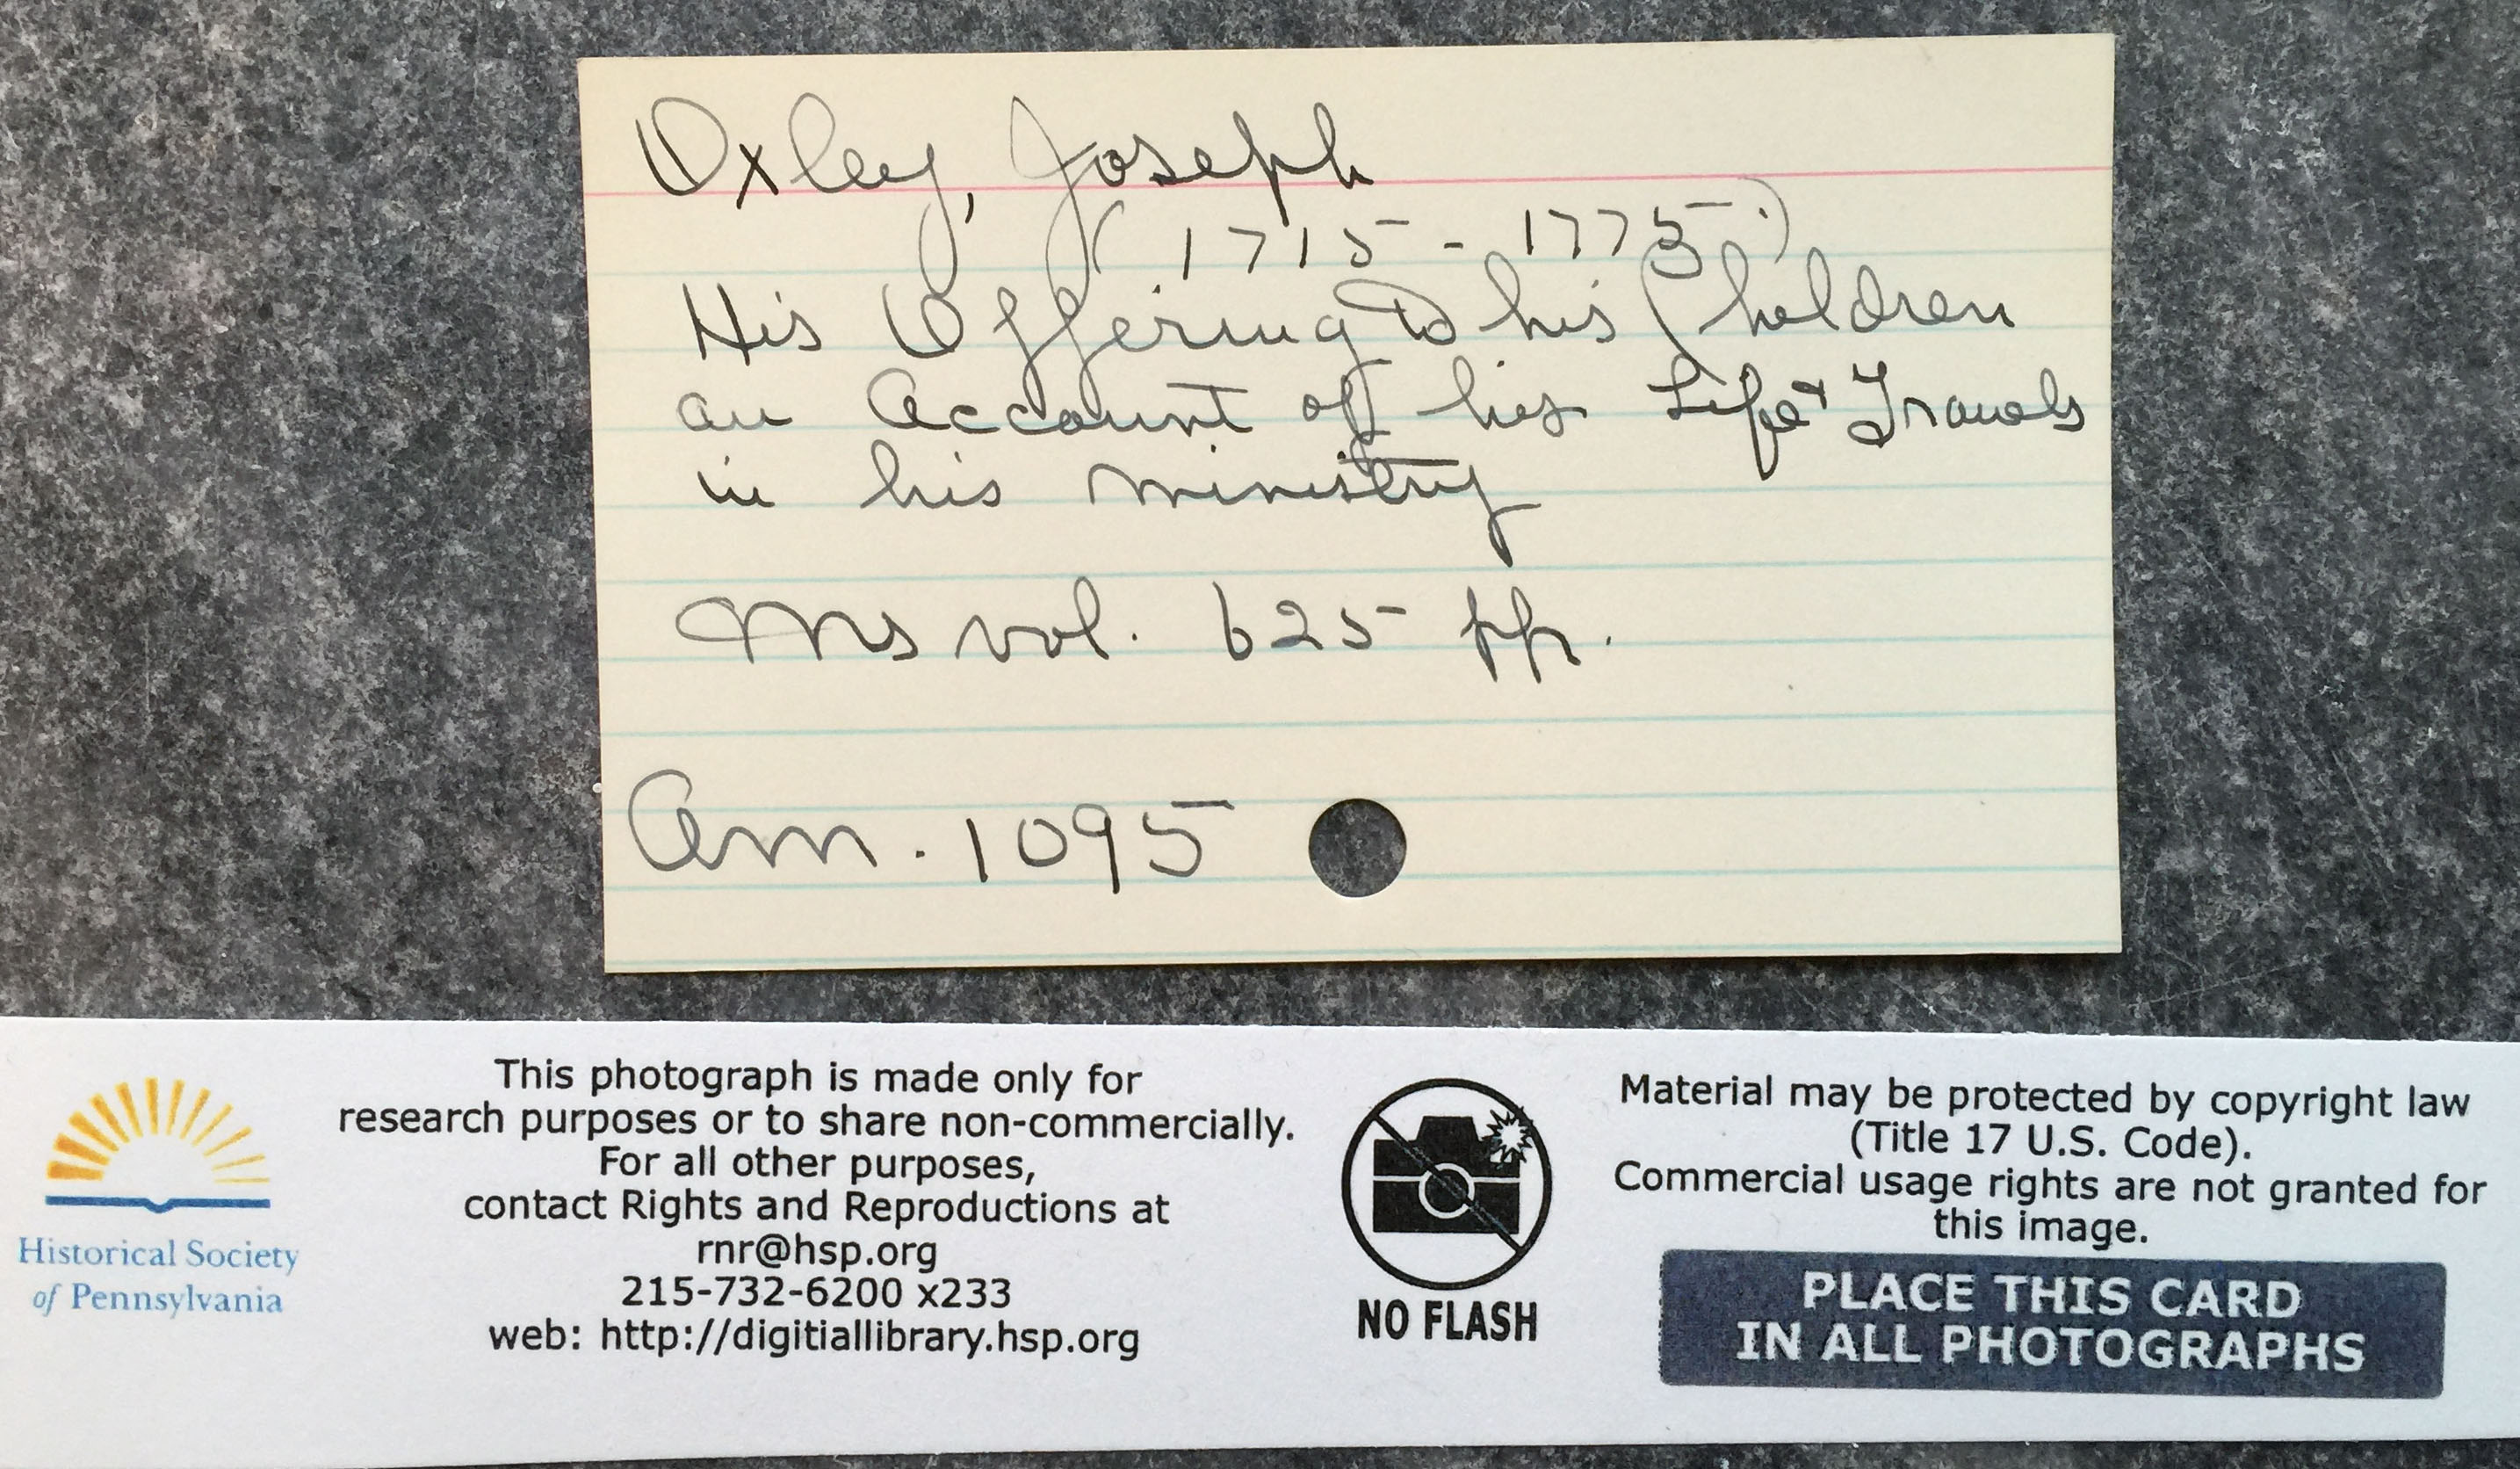 Oxley, Joseph
(1715 - 1775.)
His Offering to his Children
an Account of his Life & Travels
in his ministry
Ms vol. 625 pp.
Am. 1095
Historical Society
of Pennsylvania
This photograph is made only for
research purposes or to share non-commercially.
For all other purposes,
contact Rights and Reproductions at
rnr@hsp.org
215-732-6200 x233
web: http://digitiallibrary.hsp.org
NO FLASH
Material may be protected by copyright law
(Title 17 U.S. Code).
Commercial usage rights are not granted for
this image.
PLACE THIS CARD
IN ALL PHOTOGRAPHS